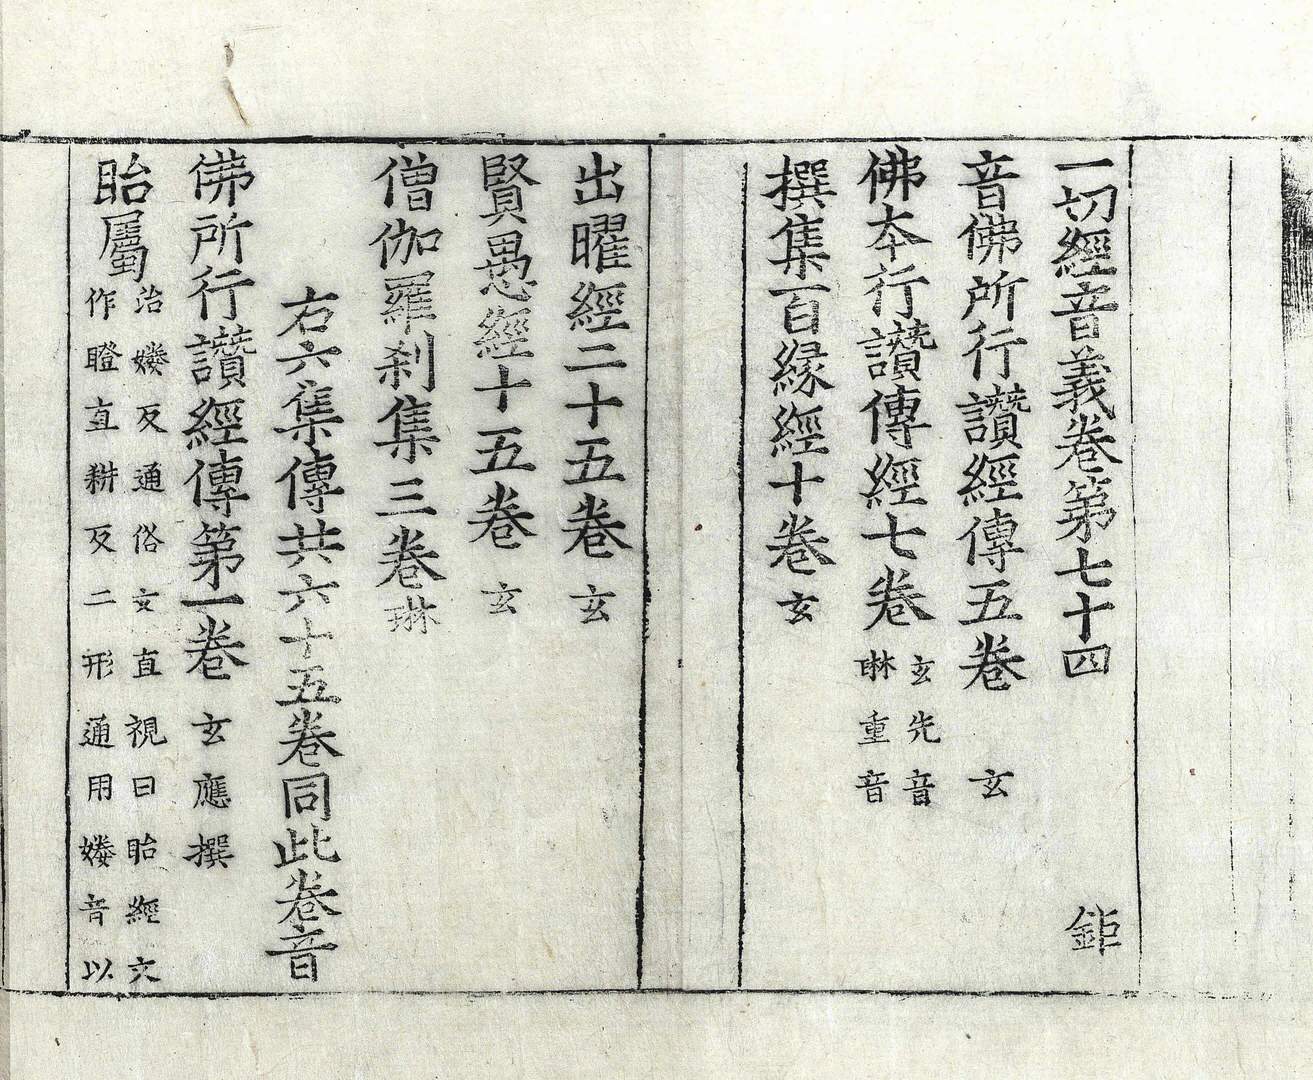 一切經音義卷第七十四 鉅
音佛所行讚經傳五卷 玄
佛本行讚傳經七卷 玄先音
琳重音
撰集百縁經十卷 玄
出曜經二十五卷 玄
賢愚經十五卷 玄
僧伽羅刹集三卷 琳
右六集傳共六十五卷同此卷音
佛所行讚經傳第一卷 玄應撰
眙屬 治㛐反通俗文直視曰眙經文
作瞪直耕反二形通用㛐音以